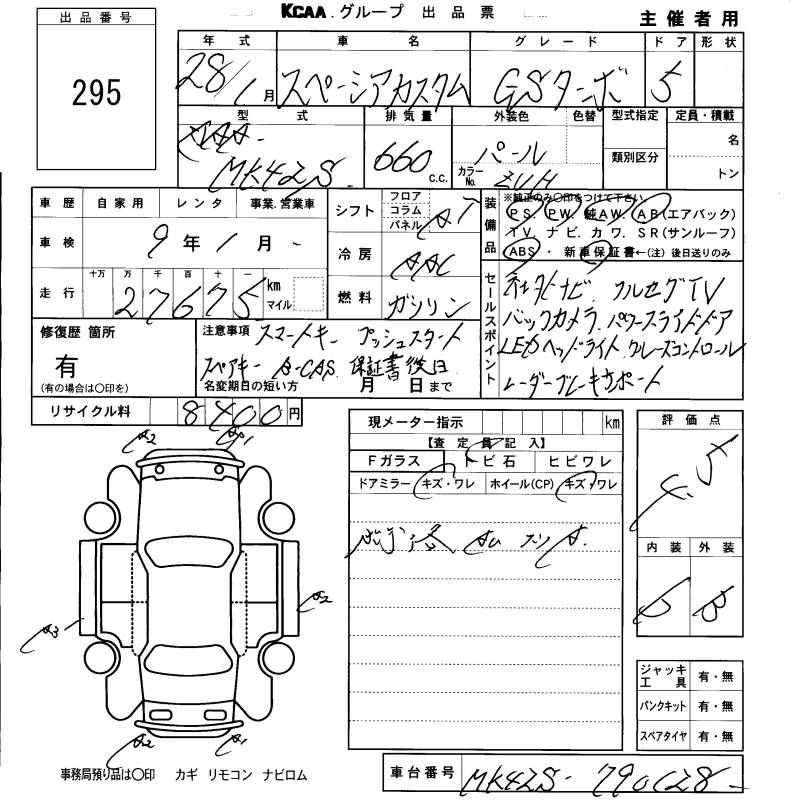 KCAA.グループ 出品票
主催者用
出品番号
295
年式 車名 グレード ドア 形状
28/1月 スペーシアカスタム GSターボ 5
型式 排気量 外装色 色替 型式指定 定員・積載
MK42S 660 c.c. パール 名
カラーNo. ZVH 類別区分 トン
車歴 自家用 レンタ 事業.営業車
シフト フロア コラム パネル AT
装備品 ※純正のみ〇印をつけて下さい
PS. PW. 純AW. AB(エアバック)
TV. ナビ. カワ. SR(サンルーフ)
ABS・新車保証書←(注)後日送りのみ
車検 9年1月
冷房 AAC
走行 十万 万 千 百 十 一
27675 km マイル
燃料 ガソリン
セールスポイント
社外ナビ フルセグTV
バックカメラ. パワースライドドア
LEDヘッドライト. クルーズコントロール
レーダーブレーキサポート
修復歴 箇所
有
(有の場合は〇印を)
注意事項 スマートキー プッシュスタート
スペアキー B-CAS. 保証書後日
名変期日の短い方 月 日まで
リサイクル料 8400円
現メーター指示 km
【査定員記入】
Fガラス トビ石 ヒビワレ
ドアミラー キズ・ワレ ホイール(CP) キズ・ワレ
評価点
4.5
内装 外装
B
A2 A1
A2
A3
A2 A1
ジャッキ工具 有・無
パンクキット 有・無
スペアタイヤ 有・無
事務局預り品は〇印 カギ リモコン ナビロム
車台番号 MK42S-